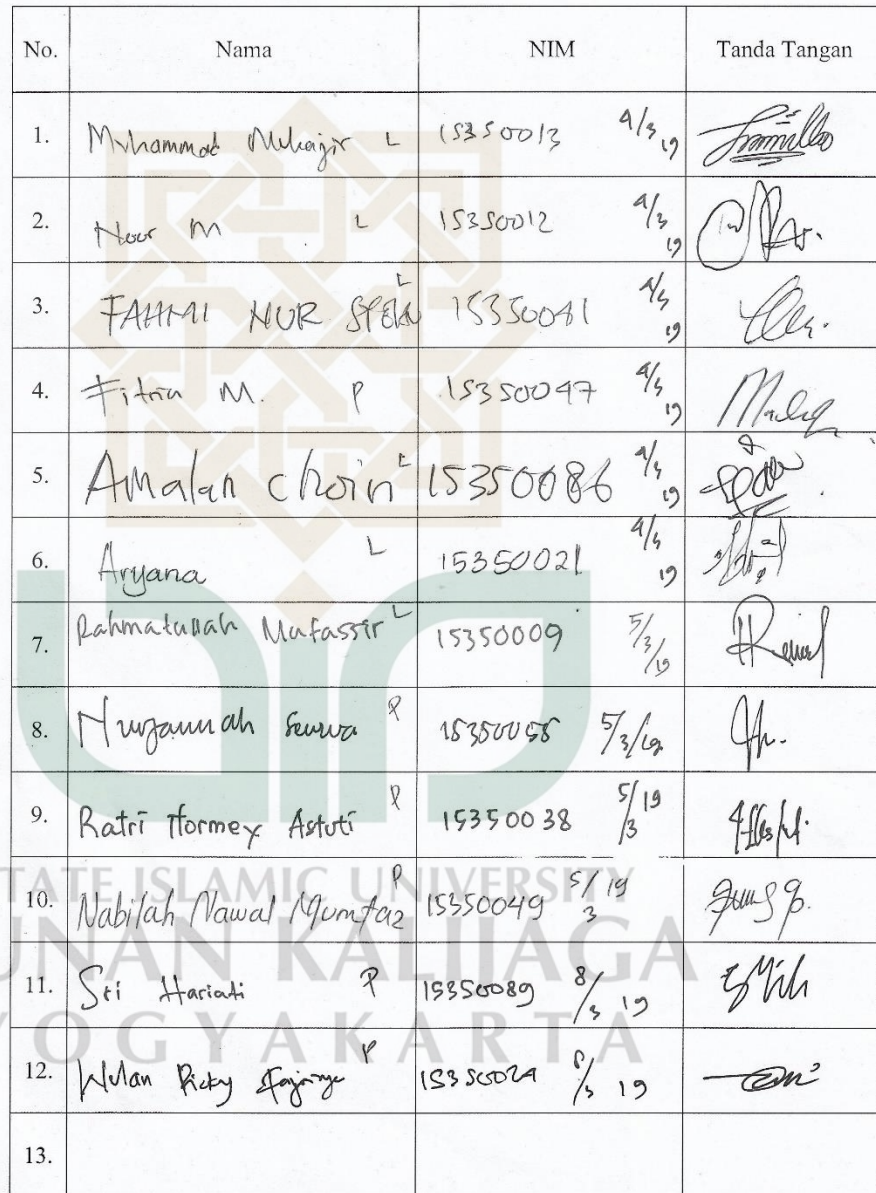 No. Nama NIM Tanda Tangan
1. Muhammad Muhajir L 15350013 4/3 19
2. Noor M L 15350012 4/3 19
3. FAHMI NUR L 15350041 4/3 19
4. Fitria M. P 15350047 4/3 19
5. Amalan choin L 15350086 4/3 19
6. Aryana L 15350021 4/3 19
7. Rahmatullah Mufassir L 15350009 5/3/19
8. Nurjannah P 15350055 5/3/19
9. Ratri Hormex Astuti P 15350038 5/3 19
10. Nabilah Nawal Mumtaz P 15350049 5/3 19
11. Sri Hariati P 15350089 8/3 19
12. Wulan Ricky P 15350029 8/3 19
13.
STATE ISLAMIC UNIVERSITY
SUNAN KALIJAGA
YOGYAKARTA